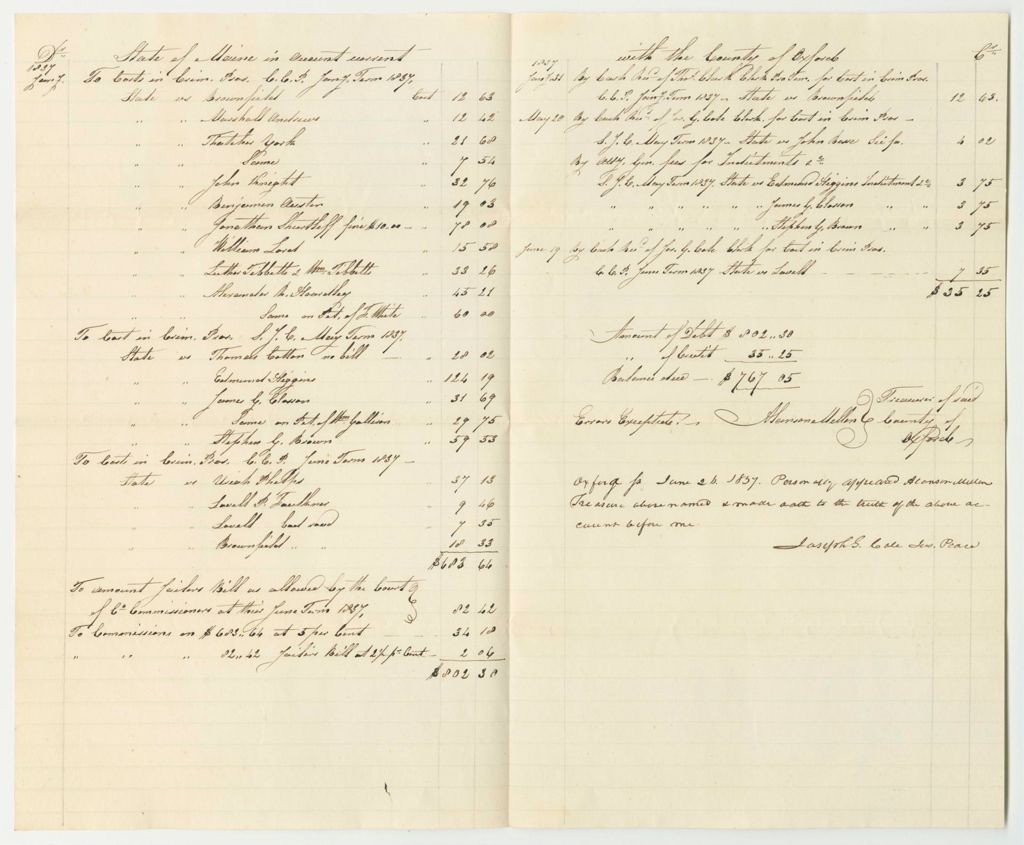 Dr State of Maine in account current
1837
Jany. To Costs in Crim. Pros. C.C.P. Jany. Term 1837,
State vs Brownfield Cost 12 63
" " Marshall Andrews " 12 42
" " Thatcher York " 21 68
" " Same " 7 54
" " John Knight " 32 76
" " Benjamin Austin " 19 03
" " Jonathan Shurtleff fine $10.00 " 78 08
" " William " 15 58
" " Luther Tebbetts & Wm. Tebbetts " 33 26
" " Alexander R. " 45 21
" " Same on Pet. of T. White " 60 00
To Cost in Crim. Pros. S.J.C. May Term 1837,
State vs Thomas Cotton no bill 28 02
" " Edmund Higgins " 124 19
" " James G. Closson " 31 69
" " Same on Pet. of Wm. Gallison " 29 75
" " Stephen G. Brown " 59 53
To Costs in Crim. Pros. C.C.P. June Term 1837
State vs Uriah Phelps 37 13
" " Lovell P. Faulkner 9 46
" " Lovell Cost 7 35
" " Brownfield " " 18 33
$683 64
To amount Jailers Bill as allowed by the Court
of Co. Commissioners at their June Term 1837, 82 42
To Commissions on $683..64 at 5 per Cent 34 18
" " " 82..42 Jailers Bill at 2½ pr. Cent 2 06
$802 30
with the County of Oxford Cr
1837
Jany. 31 By Cash Recd. of Clark Clerk Pro Tem. for Cost in Crim Pros.
C.C.P. Jany. Term 1837 State vs Brownfield 12 63.
May 20 By Cash Recd. of Jos. G. Cole Clerk. for Cost in Crim Pros
S.J.C. May Term 1837 State vs John Sci fa. 4 02
By Atty. Gen. fees for Indictments &c
S.J.C. May Term 1837. State vs Edmund Higgins Indictment &c 3 75
" " " " James G. Closson " " 3 75
" " " " Stephen G. Brown " " 3 75
June 19 By Cash Recd. of Jos. G. Cole Clerk for Cost in Crim Pros.
C.C.P. June Term 1837 State vs Lovell 7 35
$35 25
Amount of Debt $802..30
" of Credit 35..25
Balance due $767 05
Errors Excepted. Alanson Mellen Treasurer of said
County of
Oxford
Oxford ss June 26. 1837. Personally appeared Alanson Mellen
Treasurer above named & made oath to the truth of the above ac-
count before me
Joseph G. Cole Jus. Peace